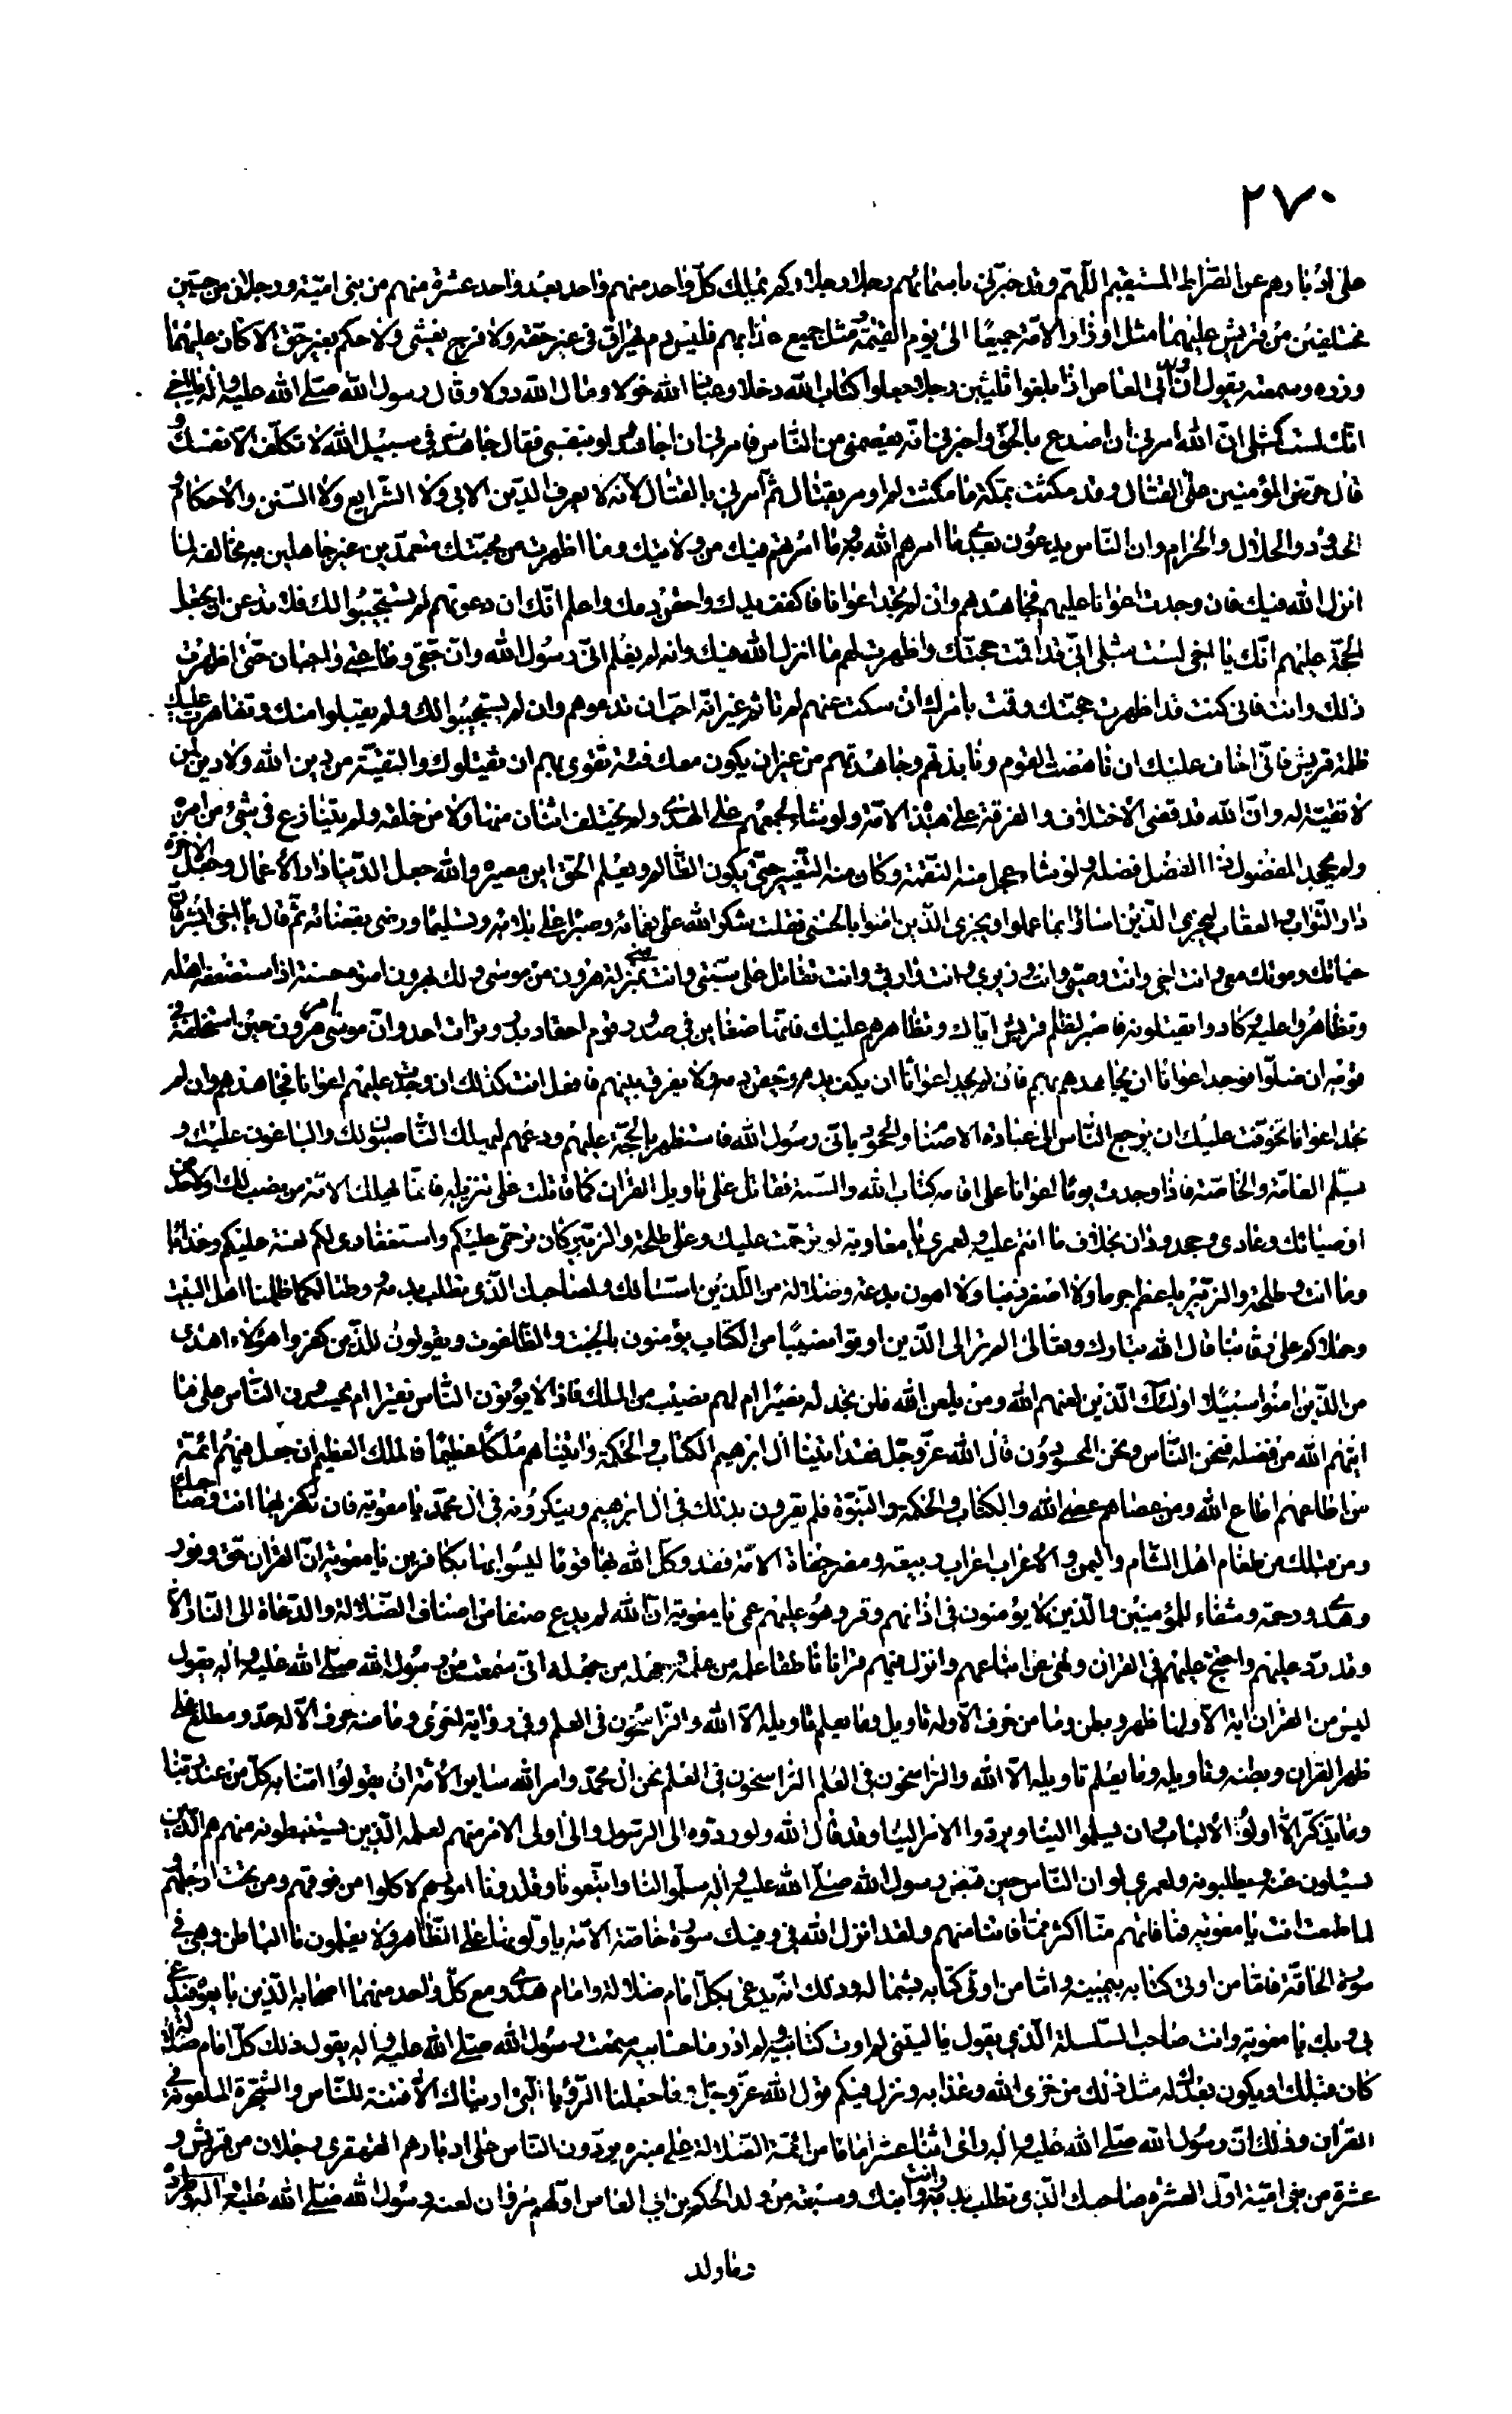 ٢٧٠
على ادبارهم عن الصراط المستقيم اللهم وقد خبرنى باسمائهم رجلا رجلا وكم يملك كل واحد منهم واحد بعد واحد عشرة منهم من بنى امية ورجلان من حيين
مختلفين من قريش عليهما مثل اوزار الامة جميعا الى يوم القيمة ومثل جميع عذابهم فليس دم يهراق فى غير حقه ولا فرج يغشى ولا حكم بغير حق الا كان عليهما
وزره وسمعته يقول ان بنى ابى العاص اذا بلغوا ثلثين رجلا جعلوا كتاب الله دخلا وعباد الله خولا ومال الله دولا وقال رسول الله صلى الله عليه واله يا اخى
انك لست كمثلى ان الله امرنى ان اصدع بالحق واخبرنى انه يعصمنى من الناس فامرنى ان اجاهد ولو بنفسى فقال جاهد فى سبيل الله لا تكلف الا نفسك و
قال حرض المؤمنين على القتال وقد مكثت بمكة ما مكثت لم اومر بقتال ثم امرنى بالقتال لانه لا يعرف الدين الا بى ولا الشرايع ولا السنن والاحكام و
الحدود والحلال والحرام وان الناس يدعون بعدى ما امرهم الله به وما امرتهم فيك من ولايتك وما اظهرت من محبتك متعمدين غير جاهلين مخالفة لما
انزل الله فيك فان وجدت اعوانا عليهم فجاهدهم وان لم تجد اعوانا فاكفف يدك واحقن دمك واعلم انك ان دعوتهم لم يستجيبوا لك فلا تدعن ان تجعل
الحجة عليهم انك يا اخى لست مثلى انى قد اقمت حجتك واظهرت لهم ما انزل الله فيك وانه لم يعلم انى رسول الله وان حقى وطاعتى واجبان حتى اظهرت
ذلك وانت فانى كنت قد اظهرت حجتك وقمت بامرك ان سكت عنهم لم تاثم غير انه احب ان تدعوهم وان لم يستجيبوا لك ولم يقبلوا منك وتظاهرت عليك
ظلمة قريش فانى اخاف عليك ان ناهضت القوم ونابذتهم وجاهدتهم من غير ان يكون معك فئة تقوى بهم ان يقتلوك والتقية من دين الله ولا دين لمن
لا تقية له وان الله قد قضى الاختلاف والفرقة على هذه الامة ولو شاء لجمعهم على الهدى ولم يختلف اثنان منها ولا من خلقه ولم يتنازع فى شىء من امره
ولم يجحد المفضول ذا الفضل فضله ولو شاء عجل منه النقمة وكان منه التغيير حتى يكون الظالم ويعلم الحق اين مصيره والله جعل الدنيا دار الاعمال وجعل الاخرة
دار الثواب والعقاب ليجزى الذين اساؤا بما عملوا ويجزى الذين امنوا بالحسنى فقلت شكرا لله على نعمائه وصبرا على بلائه وتسليما ورضى بقضائه ثم قال يا اخى ابشر فان
حياتك وموتك معى وانت اخى وانت وصيى وانت وزيرى وانت وارثى وانت تقاتل على سنتى وانت منى بمنزلة هرون من موسى ولك بهرون اسوة حسنة اذا استضعفه اهله
وتظاهروا عليه وكادوا يقتلونه فاصبر لظلم قريش اياك وتظاهرهم عليك فانها ضغاين فى صدور قوم احقاد بدر وترات احد وان موسى امر هرون حين استخلفه فى
قومه ان ضلوا فوجد اعوانا ان يجاهدهم بهم فان لم يجد اعوانا ان يكف يده ويحقن دمه ولا يفرق بينهم فافعل انت كذلك ان وجدت عليهم اعوانا فجاهدهم وان لم
تجد اعوانا تخوفت عليك ان يرجع الناس الى عبادة الاصنام والجحود بانى رسول الله فاستظهر بالحجة عليهم ودعهم ليهلك الناصبون لك والباغون عليك و
يسلم العامة والخاصة فاذا وجدت يوما اعوانا على اقامة كتاب الله والسنة فقاتل على تاويل القران كما قاتلت على تنزيله فانما يهلك من الامة من نصب لك او لاحد من
اوصيائك وعادى وجحد ودان بخلاف ما انتم عليه ولعمرى يا معاوية لو ترحمت عليك وعلى طلحة والزبير كان ترحمى عليكم واستغفارى لكم لعنة عليكم وعذابا
وما انت وطلحة والزبير باعظم جرما ولا اصغر ذنبا ولا اهون بدعة وضلالة من الذين استنا لك ولصاحبك الذى تطلب بدمه ووطنا لكما ظلمنا اهل البيت
وحملاكم على رقابنا قال الله تبارك وتعالى الم تر الى الذين اوتوا نصيبا من الكتاب يؤمنون بالجبت والطاغوت ويقولون للذين كفروا هؤلاء اهدى
من الذين امنوا سبيلا اولئك الذين لعنهم الله ومن يلعن الله فلن تجد له نصيرا ام لهم نصيب من الملك فاذا لا يؤتون الناس نقيرا ام يحسدون الناس على ما
اتيهم الله من فضله فنحن الناس ونحن المحسودون قال الله عز وجل فقد اتينا ال ابرهيم الكتاب والحكمة واتيناهم ملكا عظيما فالملك العظيم ان جعل فيهم ائمة
من اطاعهم اطاع الله ومن عصاهم عصى الله والكتاب والحكمة والنبوة فلم يقرون بذلك فى ال ابرهيم وينكرونه فى ال محمد يا معوية فان تكفر بها انت وصاحبك
ومن قبلك من طغام اهل الشام واليمن والاعراب اعراب ربيعة ومضر جفاة الامة فقد وكل الله بها قوما ليسوا بها بكافرين يا معوية ان القران حق ونور
وهدى ورحمة وشفاء للمؤمنين والذين لا يؤمنون فى اذانهم وقر وهو عليهم عمى يا معوية ان الله لم يدع صنفا من اصناف الضلالة والدعاة الى النار الا
وقد رد عليهم واحتج عليهم فى القران ونهى عن اتباعهم وانزل فيهم قرانا ناطقا علمه من علمه وجهله من جهله انى سمعت من رسول الله صلى الله عليه واله يقول
ليس من القران اية الا ولها ظهر وبطن وما من حرف الا وله تاويل وما يعلم تاويله الا الله والراسخون فى العلم وفى رواية اخرى وما منه حرف الا له حد ومطلع على
ظهر القران وبطنه وتاويله وما يعلم تاويله الا الله والراسخون فى العلم الراسخون فى العلم نحن ال محمد وامر الله ساير الامة ان يقولوا امنا به كل من عند ربنا
وما يذكر الا اولوا الالباب وان يسلموا الينا ويردوا الامر الينا وقد قال الله ولو ردوه الى الرسول والى اولى الامر منهم لعلمه الذين يستنبطونه منهم هم الذين
يسئلون عنه ويطلبونه ولعمرى لو ان الناس حين قبض رسول الله صلى الله عليه واله سلموا لنا واتبعونا وقلدونا امورهم لاكلوا من فوقهم ومن تحت ارجلهم و
لما طمعت انت يا معوية فما فاتهم منا اكثر مما فاتنا منهم ولقد انزل الله فى وفيك سورة خاصة الامة ياولونها على الظاهر ولا يعلمون ما الباطن وهى فى
سورة الحاقة فاما من اوتى كتابه بيمينه واما من اوتى كتابه بشماله وذلك انه يدعى بكل امام ضلالة وامام هدى ومع كل واحد منهما اصحابه الذين بايعوه فيدعى
بى وبك يا معوية وانت صاحب السلسلة الذى يقول يا ليتنى لم اوت كتابيه ولم ادر ما حسابيه سمعت رسول الله صلى الله عليه واله يقول ذلك كل امام ضلالة
كان قبلك او يكون بعدك له مثل ذلك من خزى الله وعذابه ونزل فيكم قول الله عز وجل وما جعلنا الرؤيا التى اريناك الا فتنة للناس والشجرة الملعونة فى
القران وذلك ان رسول الله صلى الله عليه واله راى اثنا عشر اماما من ائمة الضلالة على منبره يردون الناس على ادبارهم القهقرى رجلان من قريش و
عشرة من بنى امية اول العشرة صاحبك الذى تطلب بدمه وانت وابنك وسبعة من ولد الحكم بن ابى العاص اولهم مروان لعنه رسول الله صلى الله عليه واله وطرده
وما ولد